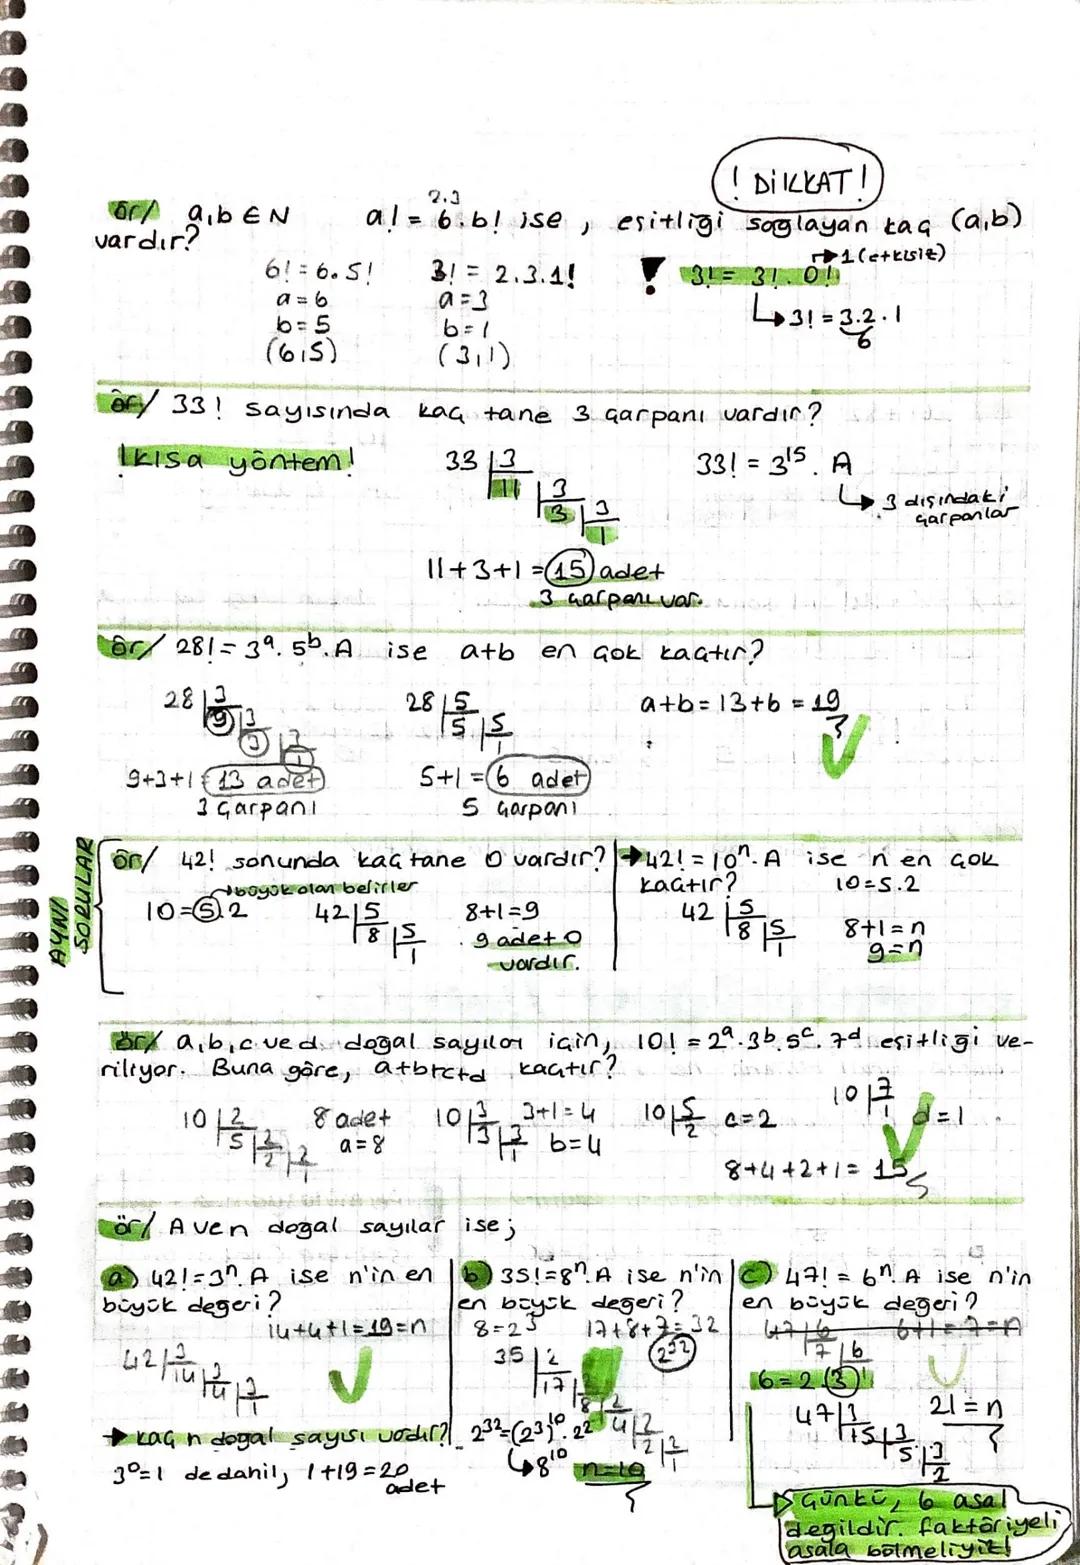 ! DİKKAT !
ör/ a,b ∈ N a! = 6.b! ise , eşitliği sağlayan kaç (a,b)
2.3
vardır?
6! = 6.5! 3! = 2.3.1! ! 3! = 3!.0!
→ 1 (etkisiz)
a=6 a=3 ↳ 3! = 3.2.1
b=5 b=1 6
(6,5) (3,1)
ör/ 33! sayısında kaç tane 3 çarpanı vardır?
!kısa yöntem! 33 | 3 33! = 3¹⁵. A
11 | 3 ↳ 3 dışındaki
3 | 3 çarpanlar
1
11+3+1 = 15 adet
3 çarpanı var.
ör/ 28! = 3ᵃ. 5ᵇ. A ise a+b en çok kaçtır?
28 | 3 28 | 5 a+b = 13+6 = 19
9 | 3 5 | 5
3 | 3 1
1
9+3+1 = 13 adet 5+1 = 6 adet
3 çarpanı 5 çarpanı
AYNI
SORULAR
ör/ 42! sonunda kaç tane 0 vardır?
→ büyük olan belirler
10 = 5.2 42 | 5 8+1=9
8 | 5 9 adet 0
1 vardır.
→ 42! = 10ⁿ. A ise n en çok
kaçtır? 10=5.2
42 | 5 8+1=n
8 | 5 9=n
1
ör/ a,b,c ve d doğal sayılar için, 10! = 2ᵃ.3ᵇ.5ᶜ.7ᵈ eşitliği ve-
riliyor. Buna göre, a+b+c+d kaçtır?
10 | 2 8 adet 10 | 3 3+1=4 10 | 5 c=2 10 | 7 d=1
5 | 2 a=8 3 | 3 b=4 2 1
2 | 2 1
1
8+4+2+1 = 15
ör/ A ve n doğal sayılar ise;
a) 42! = 3ⁿ. A ise n'in en
büyük değeri?
14+4+1=19=n
42 | 3
14 | 3
4 | 3
1
→ kaç n doğal sayısı vardır?
3⁰=1 de dahil, 1+19=20
adet
b) 35! = 8ⁿ. A ise n'in
en büyük değeri?
8=2³ 17+8+7=32
35 | 2 2³²
17 | 2
8 | 2
4 | 2
2 | 2
1
2³²=(2³)¹⁰. 2²
↳ 8¹⁰ n=10
c) 47! = 6ⁿ. A ise n'in
en büyük değeri?
47 | 6 6+1=7=n
7 | 6
1
6=2.3
47 | 3 21=n
15 | 3
5 | 3
2
Çünkü, 6 asal
değildir. faktöriyeli
asala bölmeliyiz!